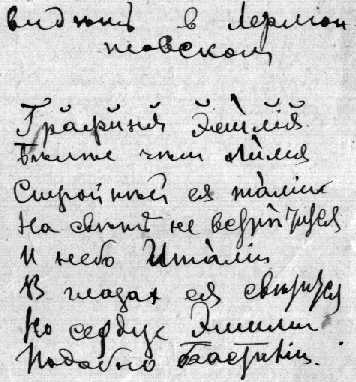 видютъ в Лермон
товском
Графиня Эмилія
Белѣе чѣм лилія
Стройнѣй ея таліи
На свѣтѣ не встрѣтится
И небо Италіи
В глазах ея свѣтится
Но сердце Эмиліи
Подобно Бастиліи.